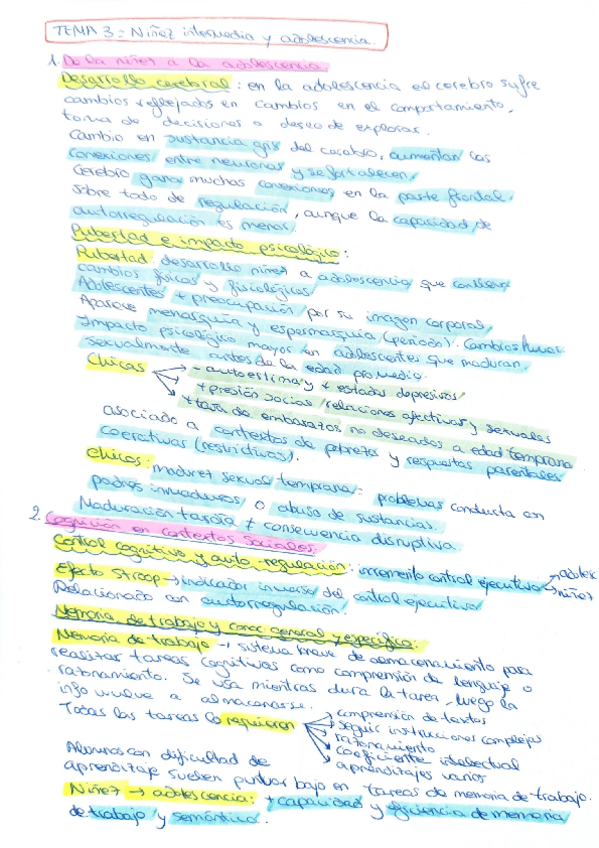 TEMA 3: Niñez intermedia y adolescencia.
1. De la niñez a la adolescencia.
Desarrollo cerebral: en la adolescencia el cerebro sufre
cambios reflejados en cambios en el comportamiento,
toma de decisiones o deseo de explorar.
Cambio en sustancia gris del cerebro, aumentan las
conexiones entre neuronas y se fortalecen.
Cerebro gana muchas conexiones en la parte frontal,
sobre todo de regulación, aunque la capacidad de
autorregulación es menor.
Pubertad e impacto psicológico:
Pubertad: desarrollo niñez a adolescencia que conlleva
cambios físicos y fisiológicos.
Adolescentes + preocupación por su imagen corporal.
Aparece menarquía y espermarquía (periodo). Cambios
Impacto psicológico mayor en adolescentes que maduran
sexualmente antes de la edad promedio.
Chicas
- autoestima y + estados depresivos
+ presión social/relaciones afectivas y sexuales
+ tasa de embarazos no deseados a edad temprana
asociado a contextos de pobreza y respuestas parentales
coercitivas (restrictivas).
Chicos: madurez sexual temprana = problemas conducta con
padres inmaduros o abuso de sustancias.
Maduración tardía ≠ consecuencia disruptiva.
2. Cognición en contextos sociales.
Control cognitivo y auto-regulación: incremento control ejecutivo
adolesc
niñez
Efecto Stroop → indicador inverso del control ejecutivo
Relacionado con autorregulación.
Memoria de trabajo y conoc general y específico:
Memoria de trabajo → sistema breve de almacenamiento para
realizar tareas cognitivas como comprensión de lenguaje o
razonamiento. Se usa mientras dura la tarea, luego la
info vuelve a almacenarse.
Todas las tareas lo requieren
comprensión de textos
seguir instrucciones complejas
razonamiento
coeficiente intelectual
aprendizajes varios
Alumnos con dificultad de
aprendizaje suelen puntuar bajo en tareas de memoria de trabajo.
Niñez → adolescencia: + capacidad y eficiencia de memoria
de trabajo y semántica.